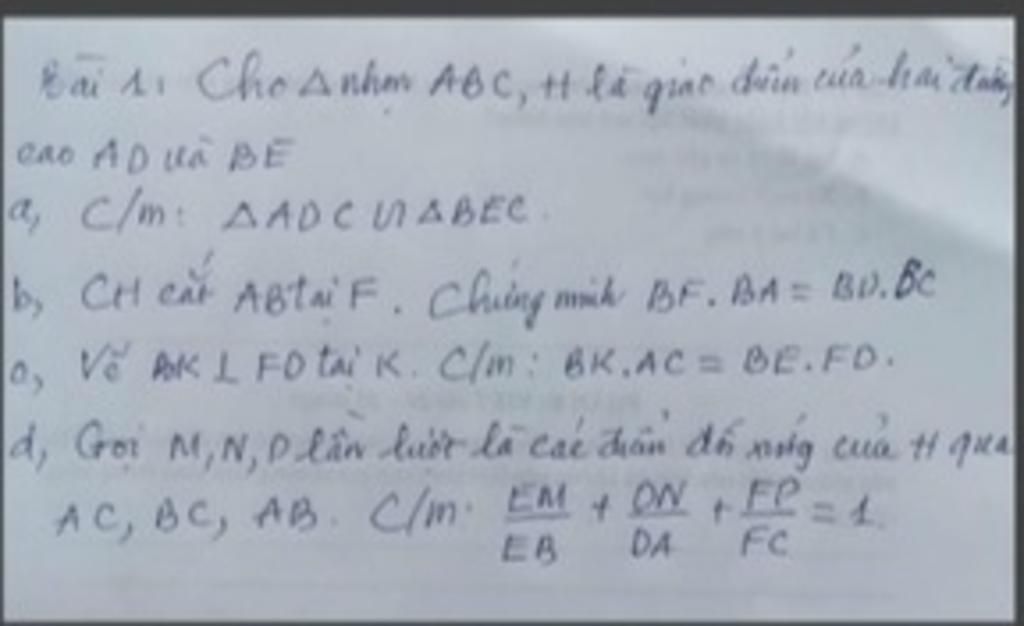 Bài 1: Cho △ nhọn ABC, H là giao điểm của hai đường
cao AD và BE
a, C/m: △ADC ∽ △BEC.
b, CH cắt AB tại F. Chứng minh BF.BA = BD.BC
c, Vẽ BK ⊥ FD tại K. C/m: BK.AC = BE.FD.
d, Gọi M, N, P lần lượt là các điểm đối xứng của H qua
AC, BC, AB. C/m: EM/EB + DN/DA + FP/FC = 1.